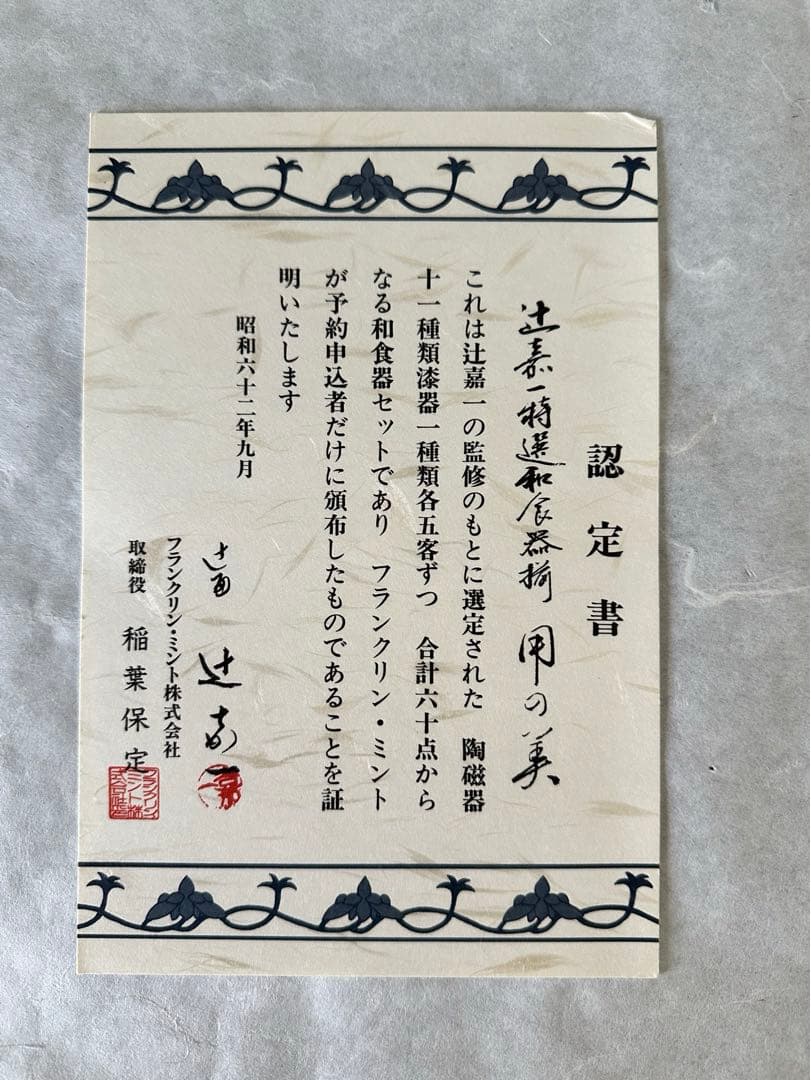 認定書
辻嘉一特選和食器揃 用の美
これは辻嘉一の監修のもとに選定された 陶磁器
十一種類漆器一種類各五客ずつ 合計六十点から
なる和食器セットであり フランクリン・ミント
が予約申込者だけに頒布したものであることを証
明いたします
昭和六十二年九月
辻留 辻嘉一
フランクリン・ミント株式会社
取締役 稲葉保定
フランクリンミント株式会社